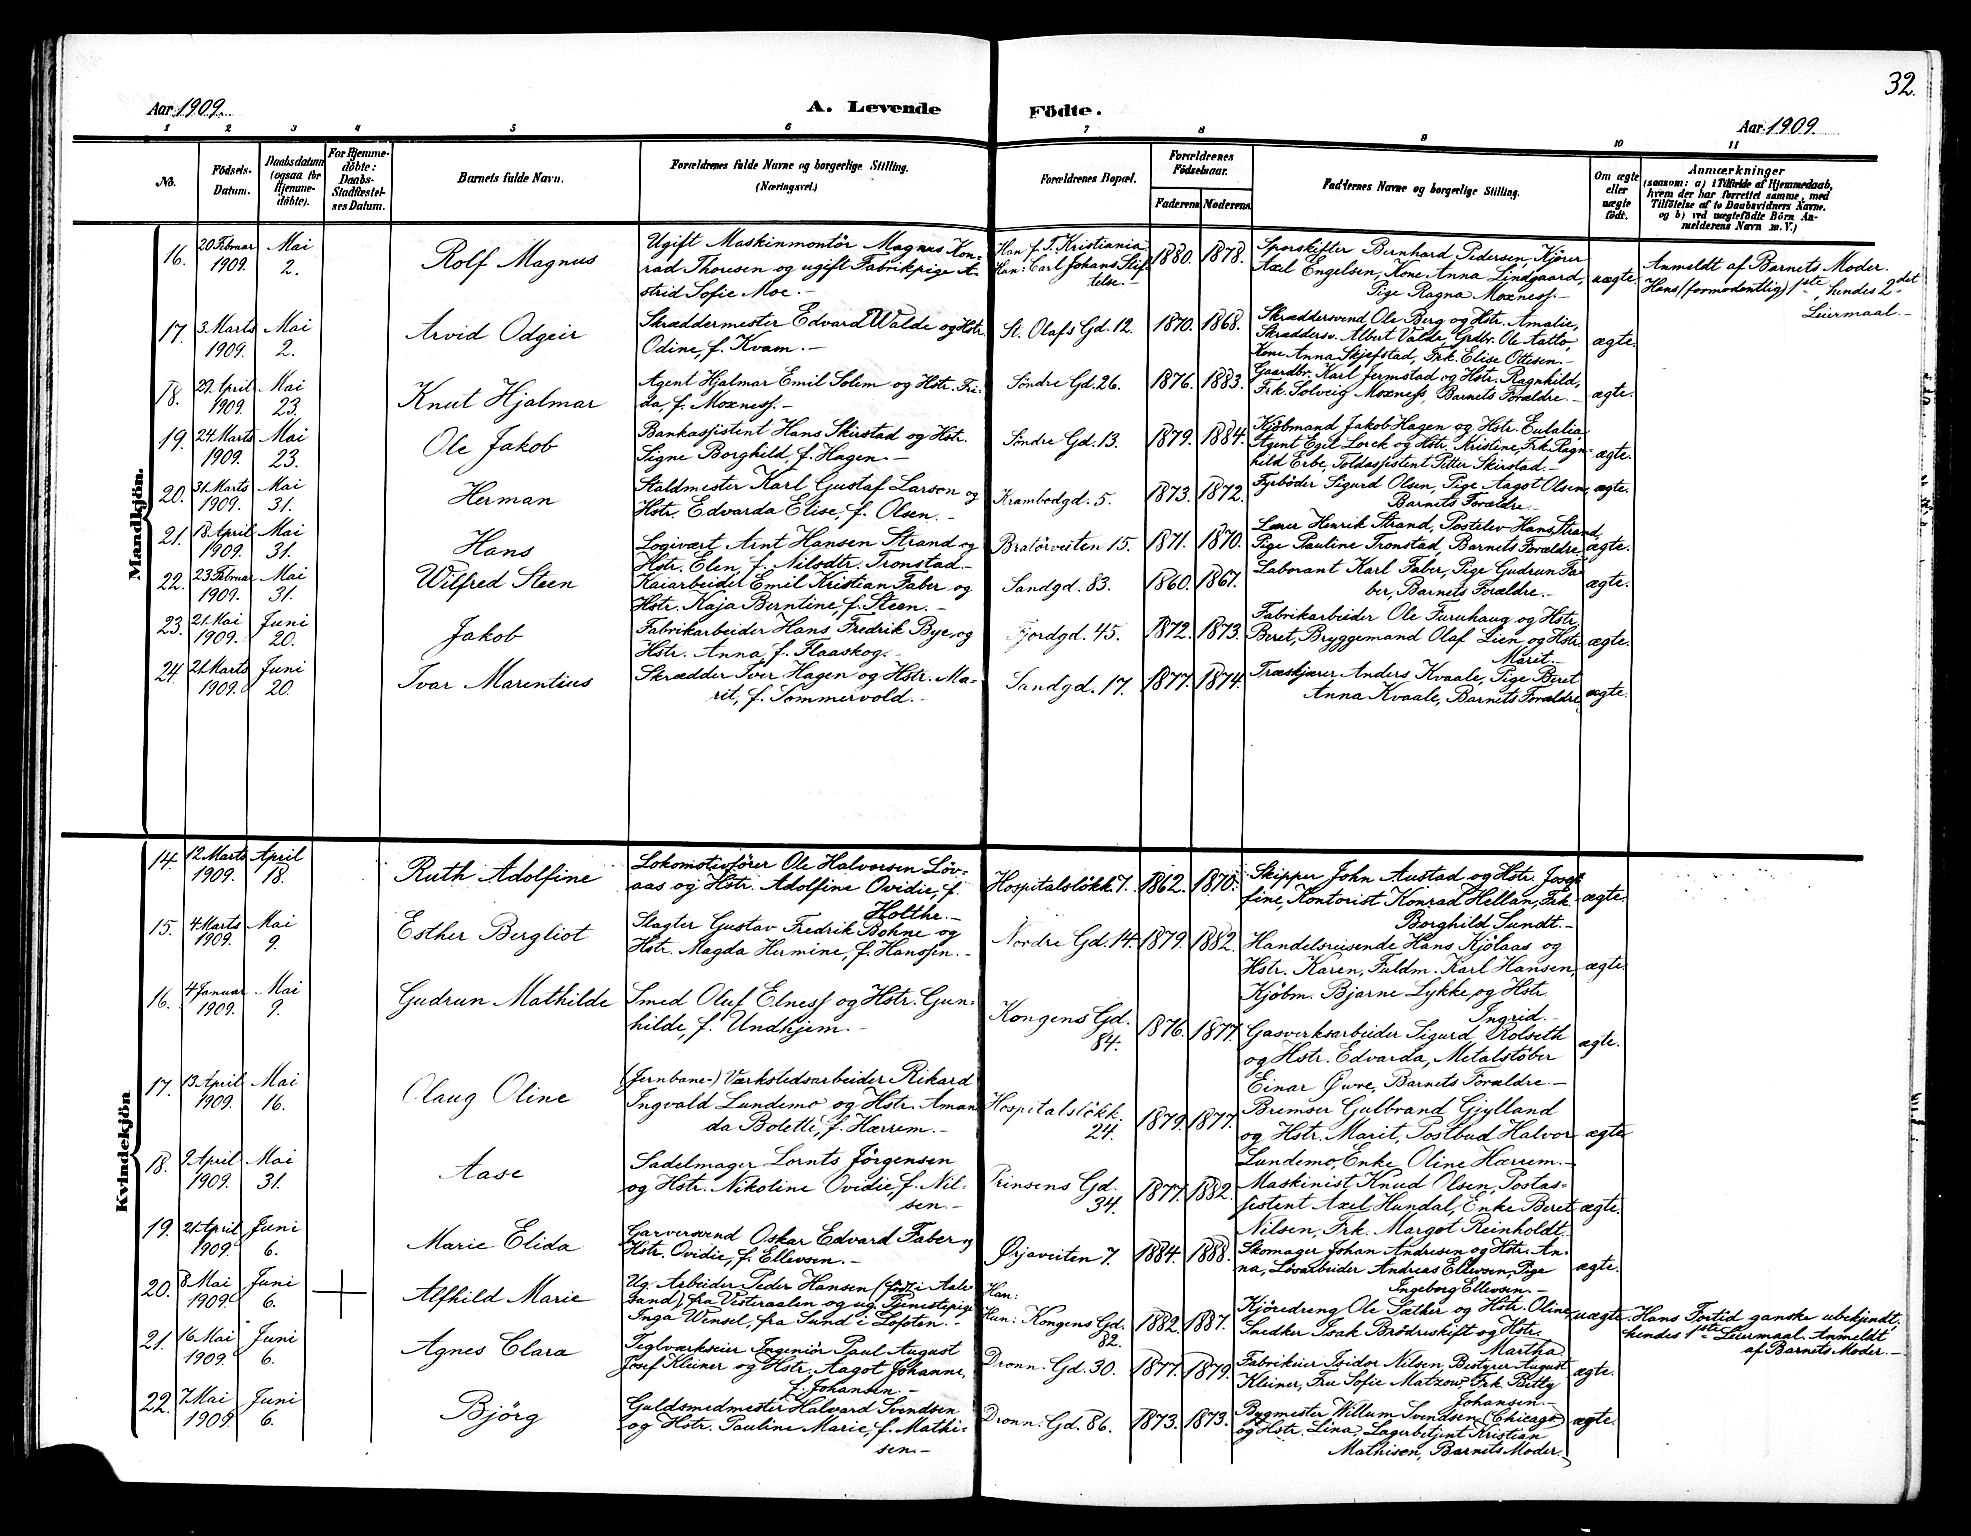 32.
Aar 1909.
A. Levende Födte.
Aar 1909.
1 2 3 4 5 6 7 8 9 10 11
No.
Födsels-
Datum.
Daabsdatum
(ogsaa for
Hjemme-
döbte).
For Hjemme-
döbte:
Daabs-
Stadfæstel-
ses Datum.
Barnets fulde Navn.
Forældrenes fulde Navne og borgerlige Stilling.
(Næringsvei.)
Forældrenes Bopæl.
Forældrenes
Födselsaar.
Faderens Moderens
Faddernes Navne og borgerlige Stilling.
Om ægte
eller
uægte
födt.
Anmærkninger
(saasom: a) i Tilfælde af Hjemmedaab,
hvem der har forrettet samme, med
Tilföielse af to Daabsvidners Navne,
og b) ved uægtefödte Börn An-
melderens Navn m. V.)
Mandkjön.
16. 20 Februar 1909. Mai 2.
Rolf Magnus
Ugift Maskinmontör Magnus Kon-
rad Thoresen og ugift Fabrikpige A-
strid Sofie Moe.-
Han f. T. Kristiania
Hun: Carl Johans Stif-
telse.-
1880. 1878.
Sporskifter Bernhard Pedersen, Kjörer
Axel Engelsen, Kone Anna Lindgaard,
Pige Ragna Moxness.-
uægte.
Anmeldt af Barnets Moder.
Hans (formodentlig) 1ste, hendes 2det
Leiermaal.-
17. 3. Marts 1909. Mai 2.
Arvid Odgeir
Skræddermester Edvard Walde og Hstr.
Odine, f. Kvam.-
St. Olafs Gd. 12.
1870. 1868.
Skræddersvend Ole Berg og Hstr. Amalie,
Skræddersv. Albert Valde, Grdbr. Ole Aatto,
Kone Anna Skjefstad, Frk. Elise Ottesen.-
ægte.
18. 29. April 1909. Mai 23.
Knut Hjalmar
Agent Hjalmar Emil Solem og Hstr. Fri-
da f. Moxness.-
Söndre Gd. 26.
1876. 1883.
Gaardbr. Karl Jermstad og Hstr. Ragnhild,
Frk. Solveig Moxness, Barnets Forældre.-
ægte.
19. 24. Marts 1909. Mai 23.
Ole Jakob
Bankassistent Hans Skirstad og Hstr.
Signe Borghild, f. Hagen.-
Söndre Gd. 13.
1879. 1884.
Kjöbmand Jakob Hagen og Hstr. Eulalia
Agent Egil Lorck og Hstr. Kristine, Frk. Ragn-
hild Erbe, Toldassistent Petter Skirstad.-
ægte.
20. 31. Marts 1909. Mai 31.
Herman
Staldmester Karl Gustaf Larsen og
Hstr. Edvarda Elise, f. Olsen.-
Krambodgd. 5.
1873. 1872.
Fyrböder Sigurd Olsen, Pige Aagot Olsen,
Barnets Forældre.-
ægte.
21. 18. April 1909. Mai 31.
Hans
Logivært Arnt Hansen Strand og
Hstr. Elen, f. Nilsdtr. Tronstad.-
Bratörveiten 15.
1871. 1870.
Lærer Henrik Strand, Postelev Hans Strand,
Pige Pauline Tronstad, Barnets Forældre.
ægte.
22. 23 Februar 1909. Mai 31.
Wilfred Steen
Kaiarbeider Emil Kristian Faber og
Hstr. Kaja Berntine, f. Steen.-
Sandgd. 83.
1860. 1867.
Laborant Karl Faber, Pige Gudrun Fa-
ber, Barnets Forældre.-
ægte.
23. 21. Mai 1909. Juni 20.
Jakob
Fabrikarbeider Hans Fredrik Bye og
Hstr. Anna, f. Flaaskog.-
Fjordgd. 45.
1872. 1873.
Fabrikarbeider Ole Furuhaug og Hstr.
Beret, Bryggemand Olaf Lien og Hstr.
Marit.-
ægte.
24. 21. Marts 1909. Juni 20.
Ivar Marentius
Skrædder Iver Hagen og Hstr. Ma-
rit, f. Sommervold.-
Sandgd. 17.
1877. 1874.
Træskjærer Anders Kvaale, Pige Beret
Anna Kvaale, Barnets Forældre.
ægte.
Kvindekjön
14. 12 Marts 1909. April 18.
Ruth Adolfine
Lokomotivförer Ole Halvorsen Löv-
aas og Hstr. Adolfine Ovidie, f.
Holthe.-
Hospitalslökk. 7.
1862. 1870.
Skipper John Austad og Hstr. Josef-
fine, Kontorist Konrad Hellan, Frk.
Borghild Sundt.-
ægte.
15. 4. Marts 1909. Mai 9.
Esther Bergliot
Slagter Gustav Fredrik Bohne og
Hstr. Magda Hermine, f. Hanssen.-
Nordre Gd. 14.
1879. 1882.
Handelsreisende Hans Kjölaas og
Hstr. Karen, Fuldm. Karl Hansen,
Kjöbm. Bjarne Lykke og Hstr
Ingrid.-
ægte.
16. 4 Januar 1909. Mai 9.
Gudrun Mathilde
Smed Oluf Elness og Hstr. Gun-
hilde, f. Undhjem.-
Kongens Gd.
84.
1876. 1877.
Gasverksarbeider Sigurd Rolseth
og Hstr. Edvarda, Metalstöber
Einar Öwre, Barnets Forældre.-
ægte.
17. 13. April 1909. Mai 16.
Olaug Oline
(Jernbane-) Værkstedsarbeider Rikard
Ingvald Lundemo og Hstr. Aman-
da Bolette, f. Hærrem.-
Hospitalslökk.
24.
1879. 1877.
Bremser Gulbrand Gjylland
og Hstr. Marit, Postbud Halvor
Lundemo, Enke Oline Hærrem.-
ægte
18. 9 April 1909. Mai 31.
Aase
Sadelmager Lornts Jörgensen
og Hstr. Nikoline Ovidie, f. Nil-
sen.-
Prinsens Gd.
34.
1877. 1882.
Maskinist Knud Olsen, Postas-
sistent Axel Hundal, Enke Beret
Nilsen, Frk. Margot Reinholdt.
ægte.
19. 21. April 1909. Juni 6.
Marie Elida
Garversvend Oskar Edvard Faber og
Hstr. Ovidie, f. Ellevsen.-
Örjaveiten 7.
1884. 1888.
Skomager Johan Andresen og Hstr. An-
na, Lösarbeider Andreas Ellevsen, Pige
Ingeborg Ellevsen.-
ægte.
20. 8. Mai 1909. Juni 6.
Alfhild Marie
Ug. Arbeider Peder Hansen (född i Aale-
sund), fra Vesteraalen og ug. Tjenestepige
Inga Wensel, fra Sund i Lofoten.-
Han:
Hun: Kongens Gd.
82.
1882. 1887.
Kjöredreng Ole Sæther og Hstr. Oline,
Snedker Isak Brödreskift og Hstr.
Martha.
uægte.
Hans Fortid ganske ubekjendt,
hendes 1ste Leiermaal. Anmeldt
af Barnets Moder.-
21. 16. Mai 1909. Juni 6.
Agnes Clara
Teglværkseier Ingeniör Paul August
Josef Kleiner og Hstr. Aagot Johanne,
f. Johansen.-
Dronn: Gd. 30.
1877. 1879.
Fabrikeier Isidor Nilsen, Bestyrer August
Kleiner, Fru Sofie Matzow, Frk. Betty
Johansen.-
ægte.
22. 7. Mai 1909 Juni 6.
Björg
Guldsmedmester Halvard Svindsen
og Hstr. Pauline Marie, f. Mathi-
sen.-
Dronn: Gd. 86.
1873. 1873.
Bygmester Willum Svendsen (Chicago)
og Hstr. Lina, Lagerbetjent Kristian
Mathisen, Barnets Moder.-
ægte.